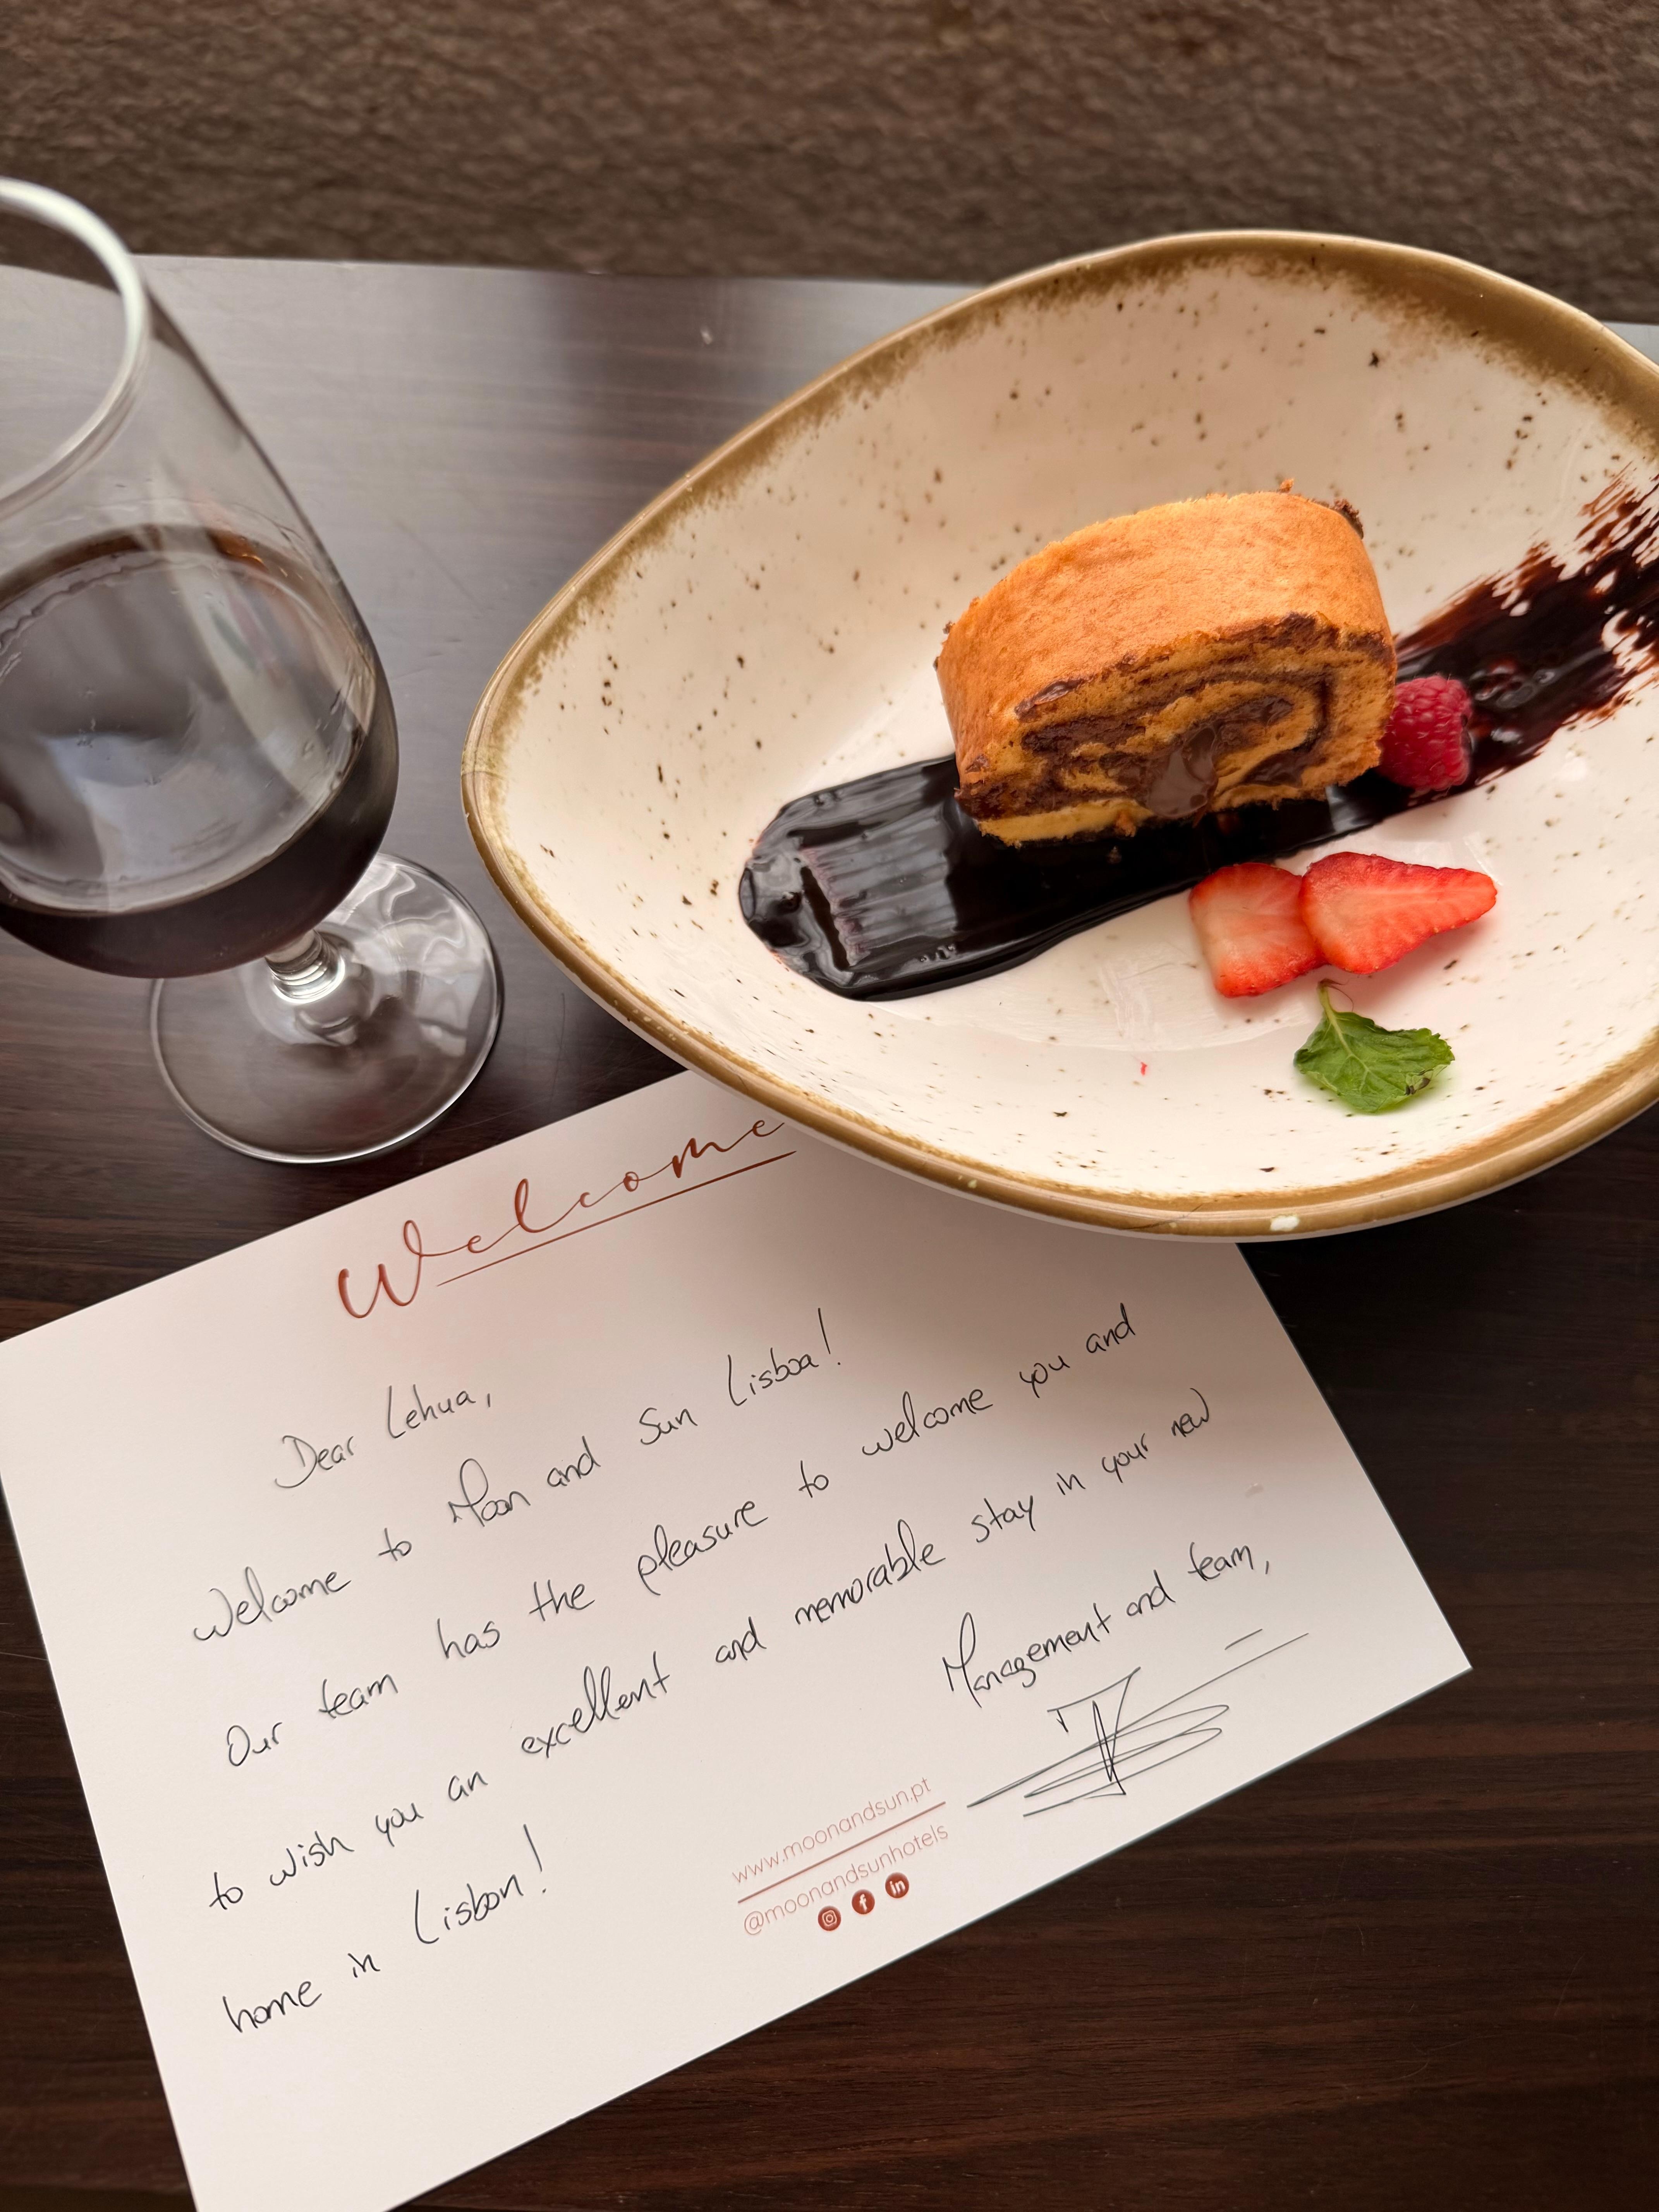 Welcome
Dear Lehua,
Welcome to Moon and Sun Lisboa!
Our team has the pleasure to welcome you and
to wish you an excellent and memorable stay in your new
home in Lisbon!
Management and team,
www.moonandsun.pt
@moonandsunhotels